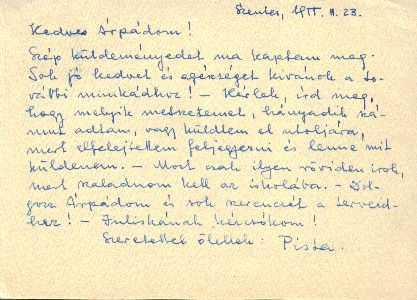 Szentes, 1955. II. 23.
Kedves Árpádom!
Szép küldeményedet ma kaptam meg.
Sok jó kedvet és egészséget kívánok a to-
vábbi munkádhoz! – Kérlek, írd meg,
hogy melyik metszetemet, hányadik szá-
mut adtam, vagy küldtem el utoljára,
mert elfelejtettem feljegyezni és lenne mit
küldenem. – Most csak ilyen röviden irok,
mert szaladnom kell az iskolába. – Dol-
gozz Árpádom és sok szerencsét a terveid-
hez! – Juliskának kézcsókom!
Szeretettel ölellek: Pista.